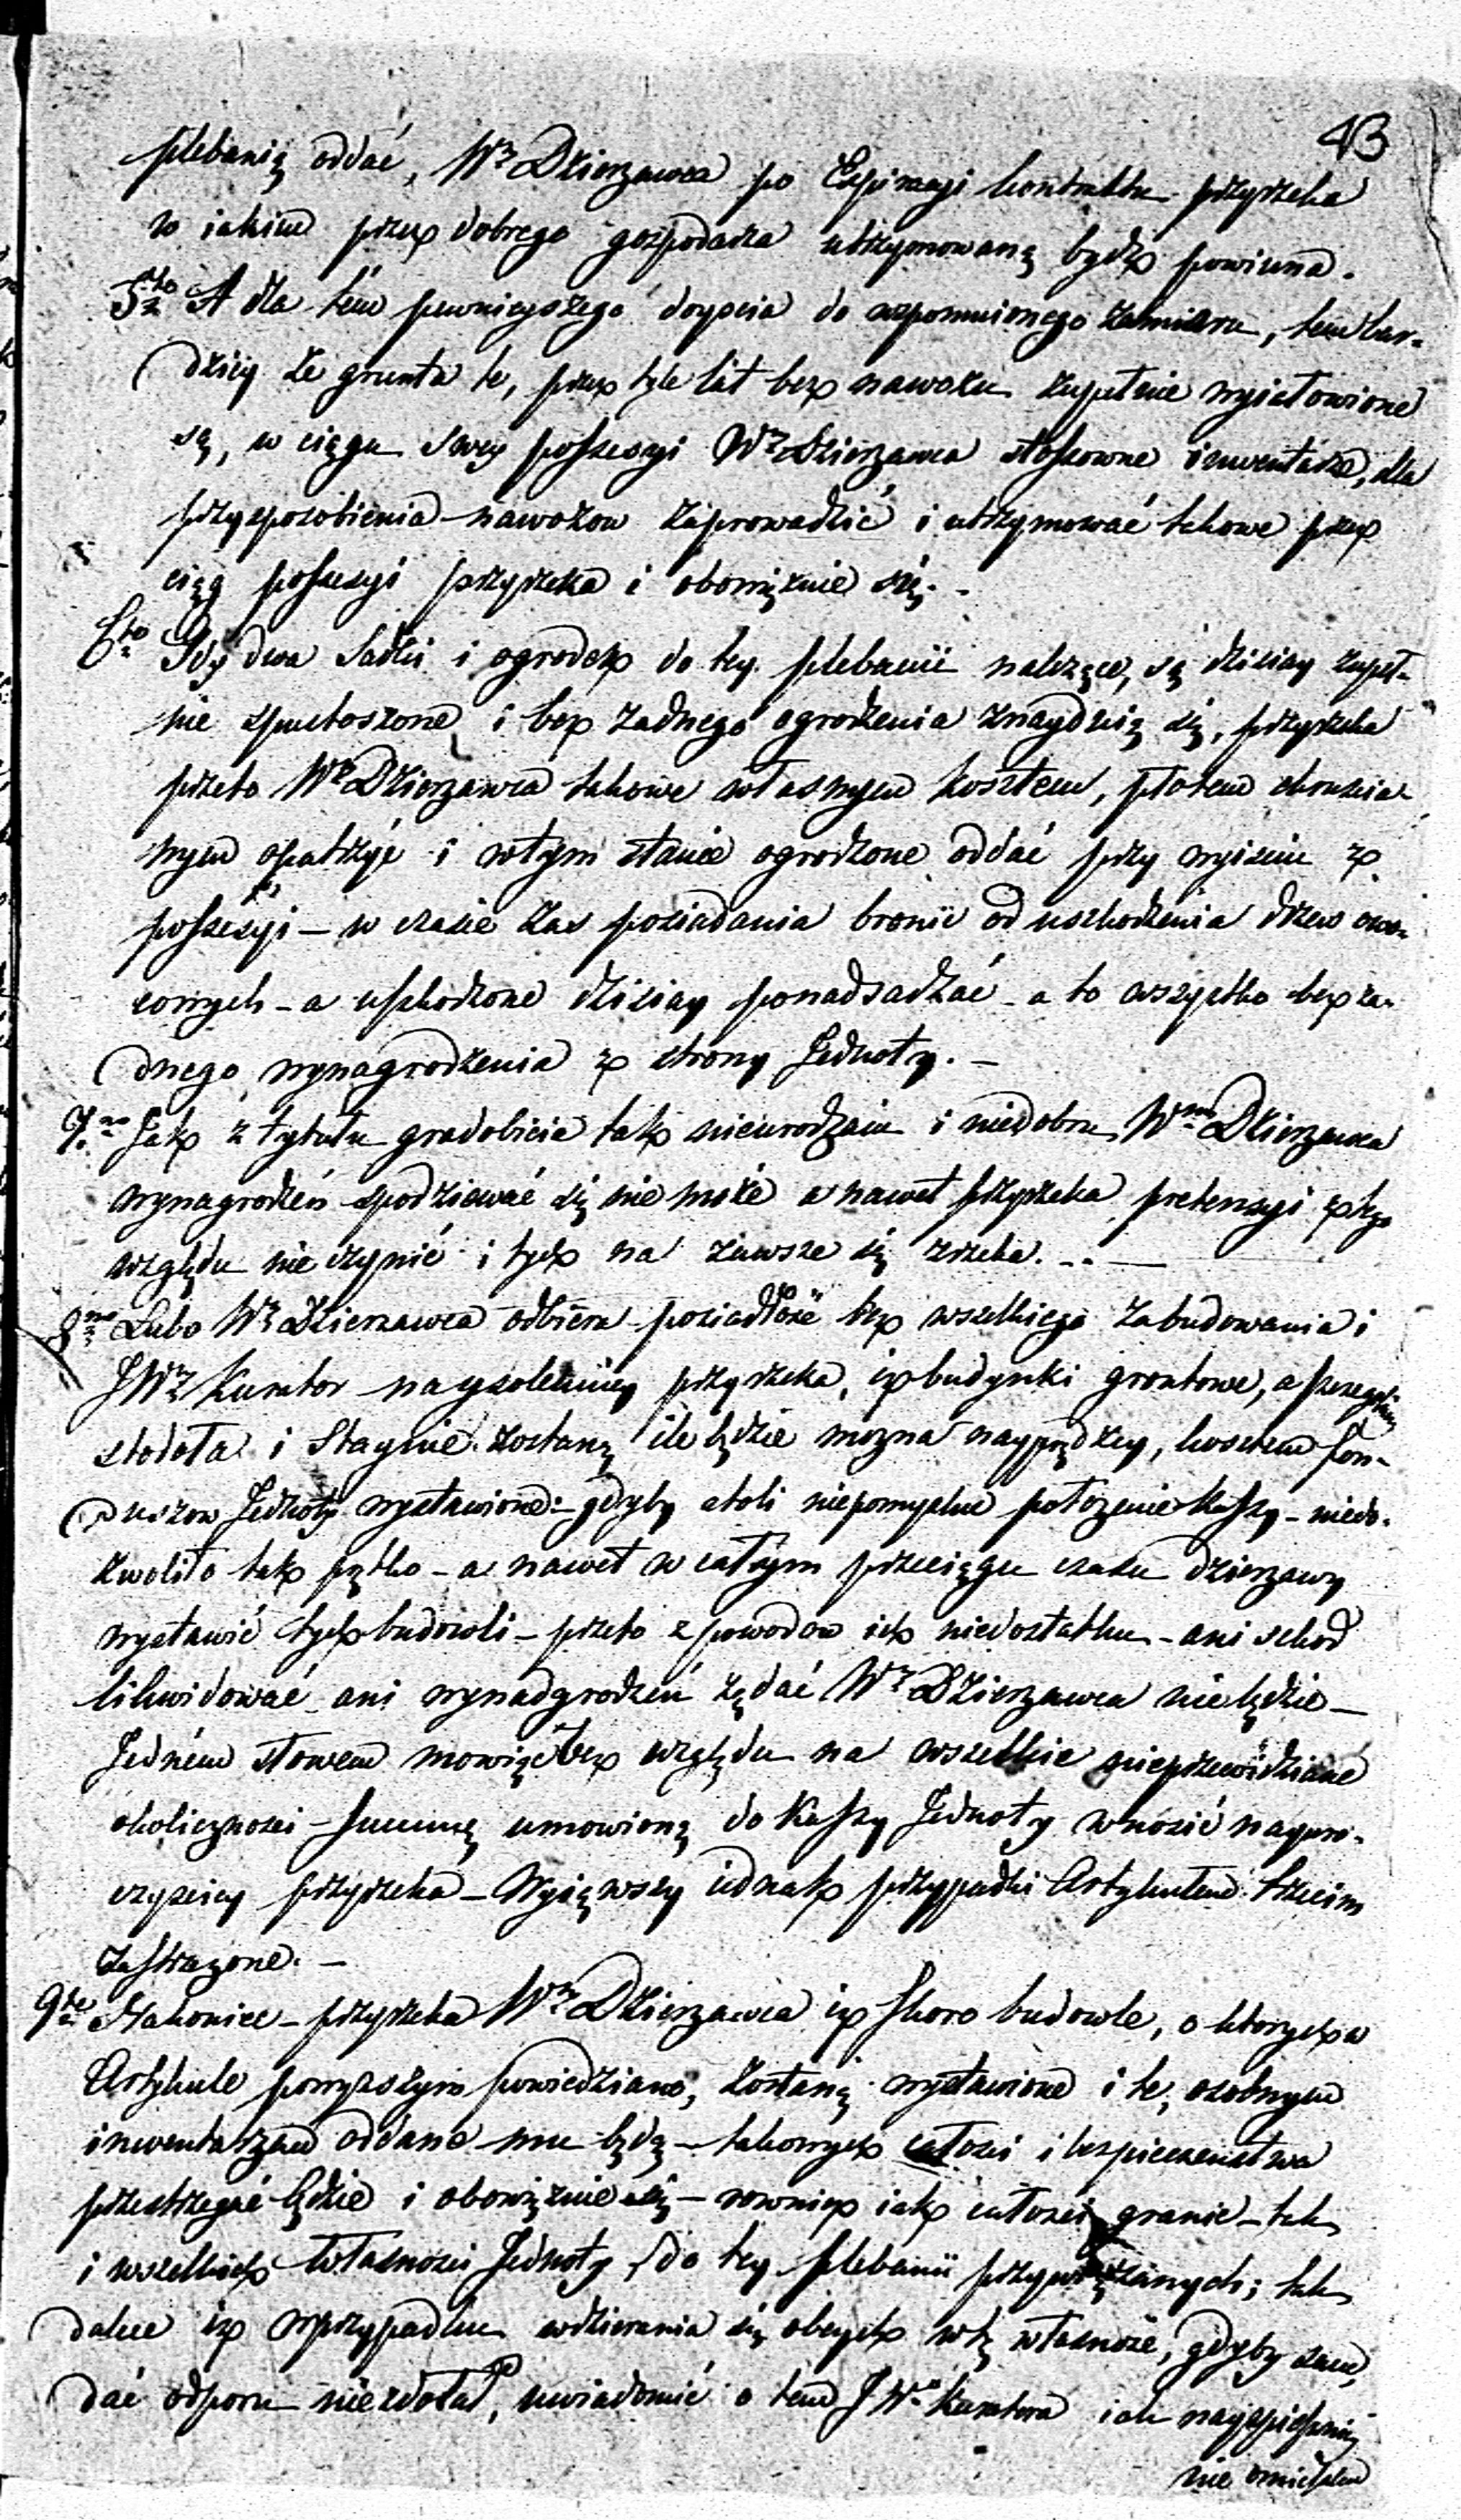 43
plebanią oddać, Wż Dzierzawca po Expiracyi kontraktu przyrzeka
w iakim przez dobrego gospodarza utrzymowaną bydz powinna.
5to A dla tem pewnieyszego doyscia do wspomnionego zamiaru, tem bar-
dziey że grunta te, przez tyle lat bez nawozu zupełnie wyiałowione
są, w ciągu swey possessyi Wż Dzierzawca stosowne inwentarze, dla
przysposobienia nawozow zaprowadzić i utrzymować takowe przez
ciąg possesyi przyrzeka i obowięzuie się. -
6to Gdy dwa Sadki i ogrodek do tey plebanii należące, są dzisiay zupeł-
nie spustoszone i bez żadnego ogrodzenia znayduią się, przyrzeka
przeto Wż Dzierzawca takowe własnym kosztem, płotem chruscia-
nym opatrzyć i w tym stanie ogrodzone oddać przy wyisciu z
possesyi - w czasie zas posiadania bronić od uszkodzenia drzew owo-
cowych - a uszkodzone dzisiay ponadsadzać - a to wszystko bez ża-
dnego wynagrodzenia z strony Jednoty. -
7mo Jak z tytułu gradobicia tak nieurodzaiu i niedoboru Wny Dzierzawca
wynagrodzeń spodziewać się nie może a nawet przyrzeka pretensyi z tego
względu nie czynić i tych na zawsze się zrzeka. - - —
8mo Lubo Wż Dzierzawca odbiera posiadłość bez wszelkiego zabudowania i
JWż Kurator nayzolenniey przyrzeka, iż budynki grontowe, a szczegulniey
stodoła i Staynie zostaną ile będzie mozna nayprędzey, kosztem fon-
duszow Jednoty wystawione: - gdyby atoli niepomyslne położenie Kassy - niedo-
zwoliło tak prętko - a nawet w całym przeciągu czasu dzierzawy
wystawić tych budowli - przeto z powodow ich niedostatku - ani schod
likwidować ani wynadgrodzeń żądać Wż Dzierzawca nie będzie —
Jedném słowem mowiąc bez względu na wszelkie nieprzewidziane
okolicznosci - Summę umowioną do Kassy Jednoty wnosić nayuro-
czysciey przyrzeka - Wyiąwszy iednak przypadki Artykułem trzecim
zastrzeżone. —
9te Nakoniec - przyrzeka Wż Dzierzawca iż skoro budowle, o ktorych w
Artykule powyzszym powiedziano, zostaną wystawione i te, osobnym
inwentarzem oddane mu będą - takowych całosci i bespieczenstwa
przestrzegać będzie i obowięzuie się - rownież iak całosci granic - tak
i wszelkich Własnosci Jednoty do tey plebanii przywiązanych; tak
dalece iż w przypadku wdzierania się obcych w tę własność, gdyby sam,
dać odporu nie zdołał, uwiadomić o tem JWo Kuratora iak nayspieszniey
nie omieszka